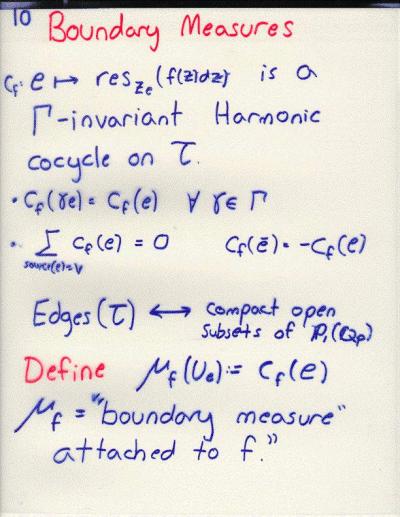 10 Boundary Measures
c_f: e ↦ res_{z_e}(f(z)dz) is a
Γ-invariant Harmonic
cocycle on T.
• C_f(γe) = C_f(e) ∀ γ ∈ Γ
• ∑_{source(e)=v} C_f(e) = 0 C_f(ē) = -C_f(e)
Edges(T) ⟷ compact open
subsets of P_1(Q_p)
Define μ_f(U_e) := C_f(e)
μ_f = "boundary measure"
attached to f."